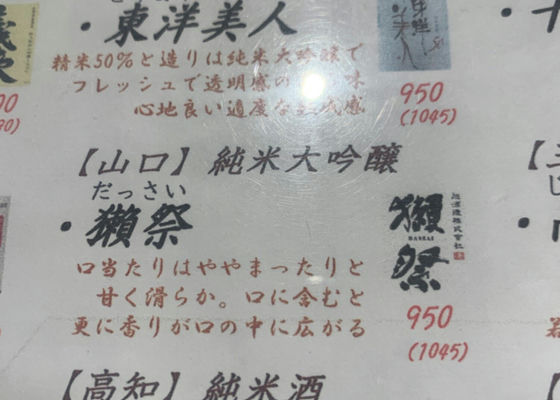 ・東洋美人
精米50%と造りは純米大吟醸で
フレッシュで透明感の 味
心地良い適度な 感
950
(1045)
【山口】純米大吟醸
だっさい
・獺祭
口当たりはややまったりと
甘く滑らか。口に含むと
更に香りが口の中に広がる
獺祭
DASSAI
旭酒造株式會社
950
(1045)
【高知】純米酒